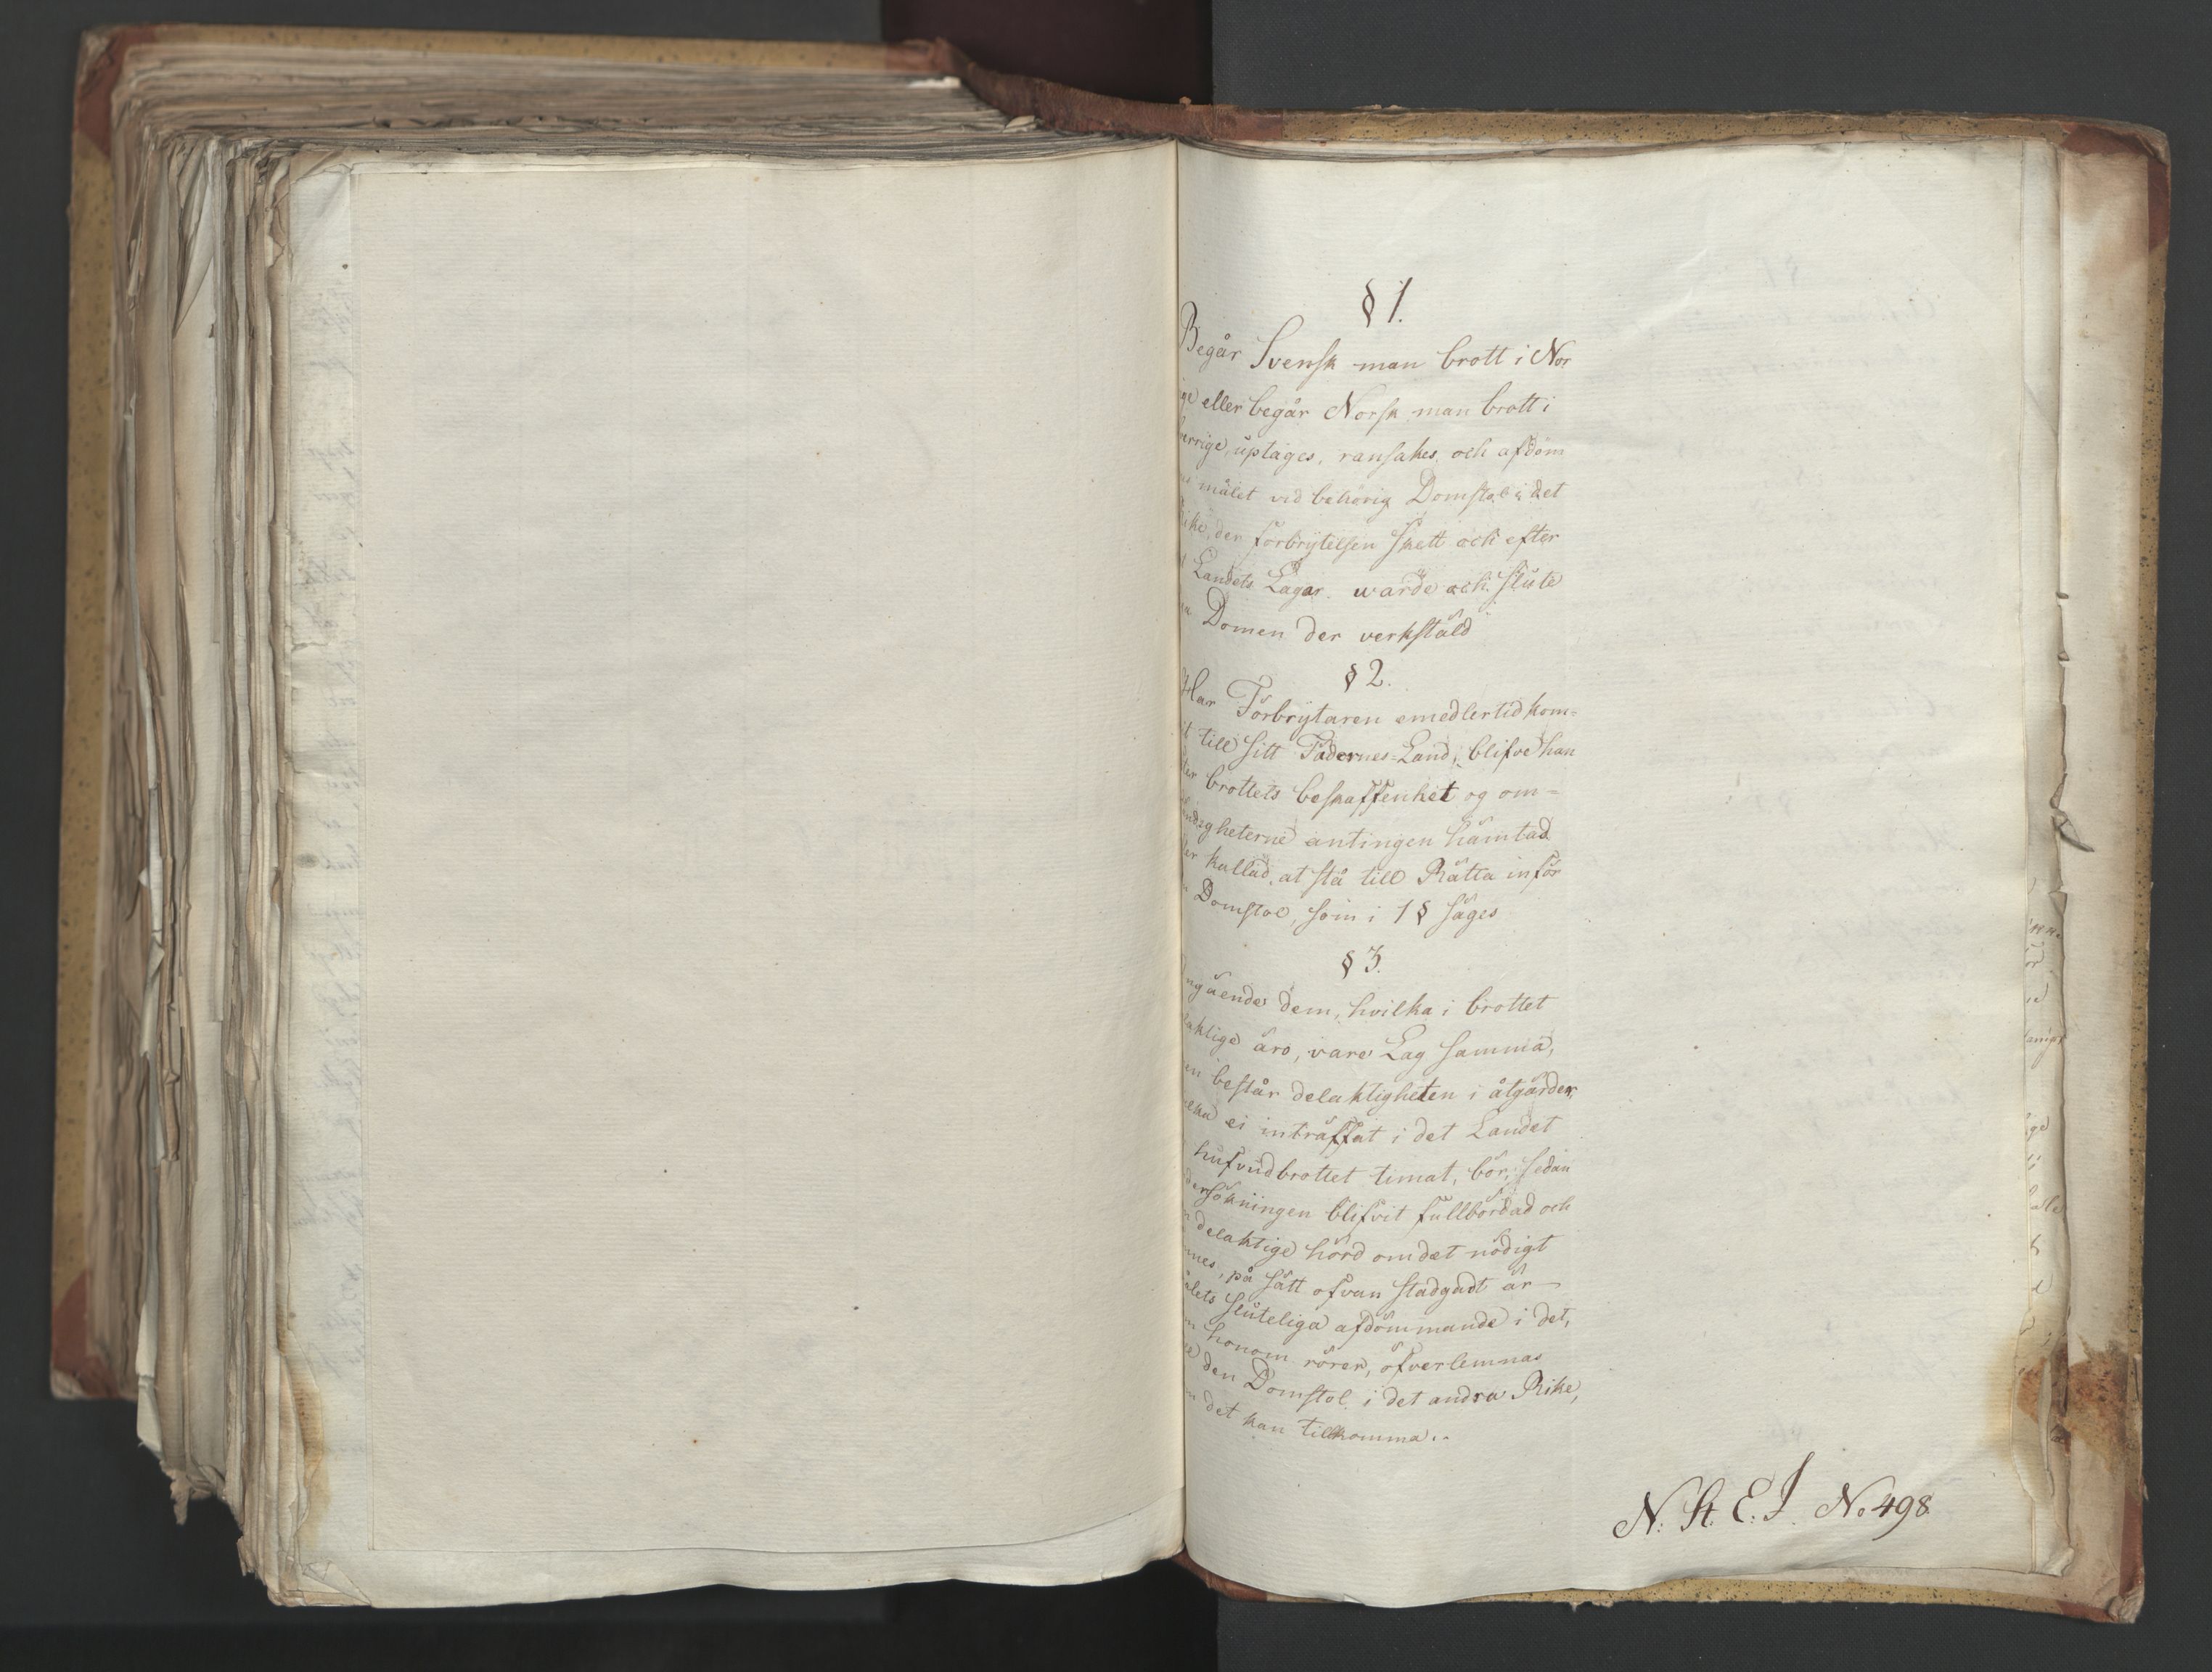 § 1.
Begår Svensk man brott i Nor
ige eller begår Norsk man brott i
verrige, uptages, ransakes och afdöm
målet vid behörig Domstol i det
ike, der förbrytelsen skett och efter
Landets Lagar. warde och slute
Domen der verkstäld
§ 2.
Har Förbrytaren emedlertid kom-
it till sitt Fädernes-Land, blifve han
ter brottets beskaffenhet og om-
ndigheterne antingen hämtad
ler kallad, at stå till Rätta inför
Domstol, som i 1 § säges
§ 3.
ngående dem, hvilka i brottet
laktige äro, vare Lag samma,
en består delaktigheten i åtgärder,
lka ei inträffat i det Landet
hufvudbrottet timat, bör, sedan
dersökningen blifvit fullbordad och
n delaktige hörd om det nödigt
nnes, på sätt ofvan stadgadt är
ålets sluteliga afdömmande i det,
m honom rörer, öfverlemnas
den Domstol i det andra Rike,
m det kan tillkomma..
N. St. E. J. No 498.